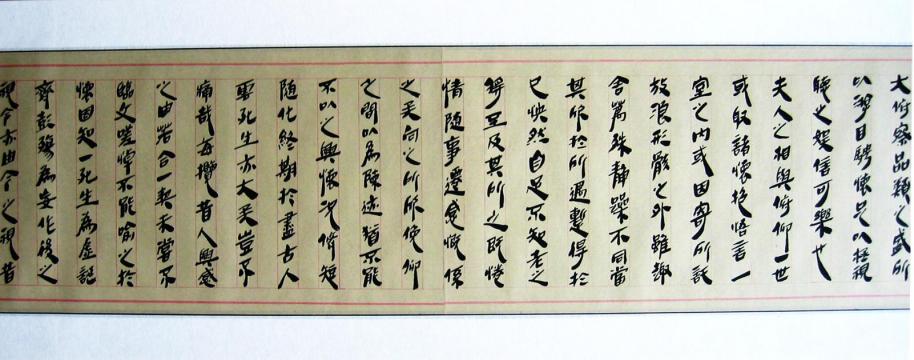 大俯察品類之盛所
以游目騁懷足以極視
聽之娛信可樂也
夫人之相與俯仰一世
或取諸懷抱悟言一
室之內或因寄所託
放浪形骸之外雖趣
舍萬殊靜躁不同當
其欣於所遇暫得於
己怏然自足不知老之
將至及其所之既惓
情隨事遷感慨係
之矣向之所欣俛仰
之間以為陳迹猶不能
不以之興懷況脩短
隨化終期於盡古人
云死生亦大矣豈不
痛哉每攬昔人興感
之由若合一契未嘗不
臨文嗟悼不能喻之於
懷固知一死生為虛誕
齊彭殤為妄作後之
視今亦由今之視昔